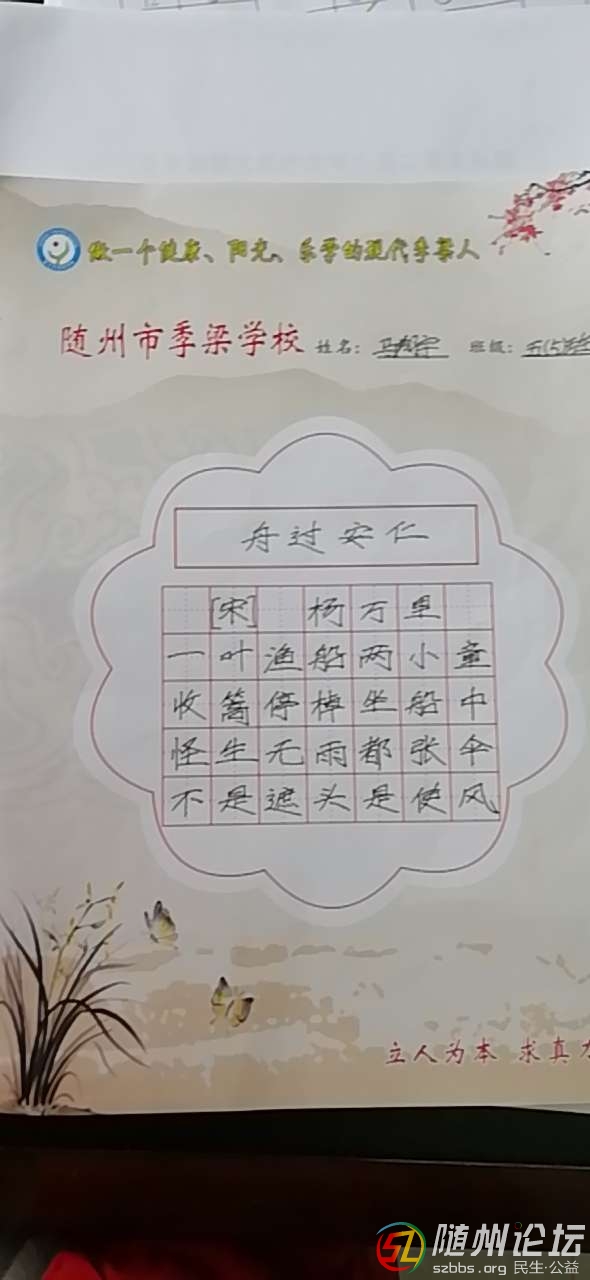 做一个健康、阳光、乐学的现代季梁人
随州市季梁学校 姓名: 班级: 五(5)班
舟过安仁
[宋] 杨万里
一叶渔船两小童
收篙停棹坐船中
怪生无雨都张伞
不是遮头是使风
立人为本 求真
随州论坛
szbbs.org 民生·公益